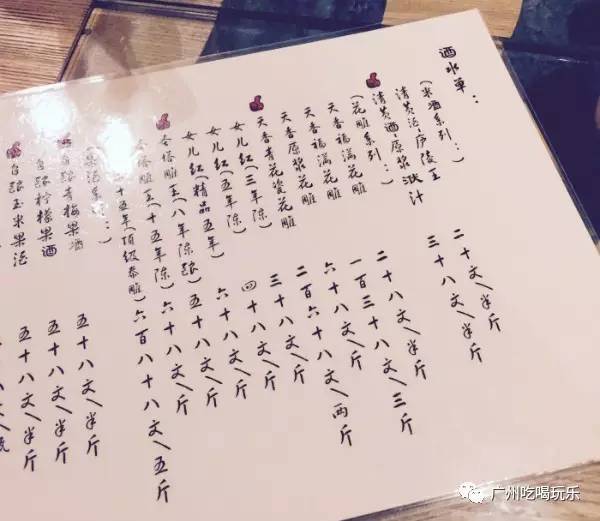 酒水单：
(米酒系列…)
清黄酒·庐陵王 二十文/半斤
清黄酒·原浆 汁 三十八文/半斤
(花雕系列…)
天香福满花雕 二十八文/半斤
天香福满花雕 一百三十八文/三斤
天香原浆花雕 六十八文/斤
天香青花瓷花雕 二百六十八文/两斤
女儿红(三年陈) 三十八文/斤
女儿红(五年陈) 四十八文/斤
女儿红(精品五年) 六十八文/斤
塔雕王(八年陈酿) 五十八文/斤
塔雕王(十五年陈) 六十八文/斤
十五年(顶级泰雕) 六百八十八文/五斤
(果酒系列…)
自酿青梅果酒 五十八文/半斤
自酿柠檬果酒 五十八文/半斤
自酿玉米果酒 五十八文/半斤
八文/瓶
广州吃喝玩乐